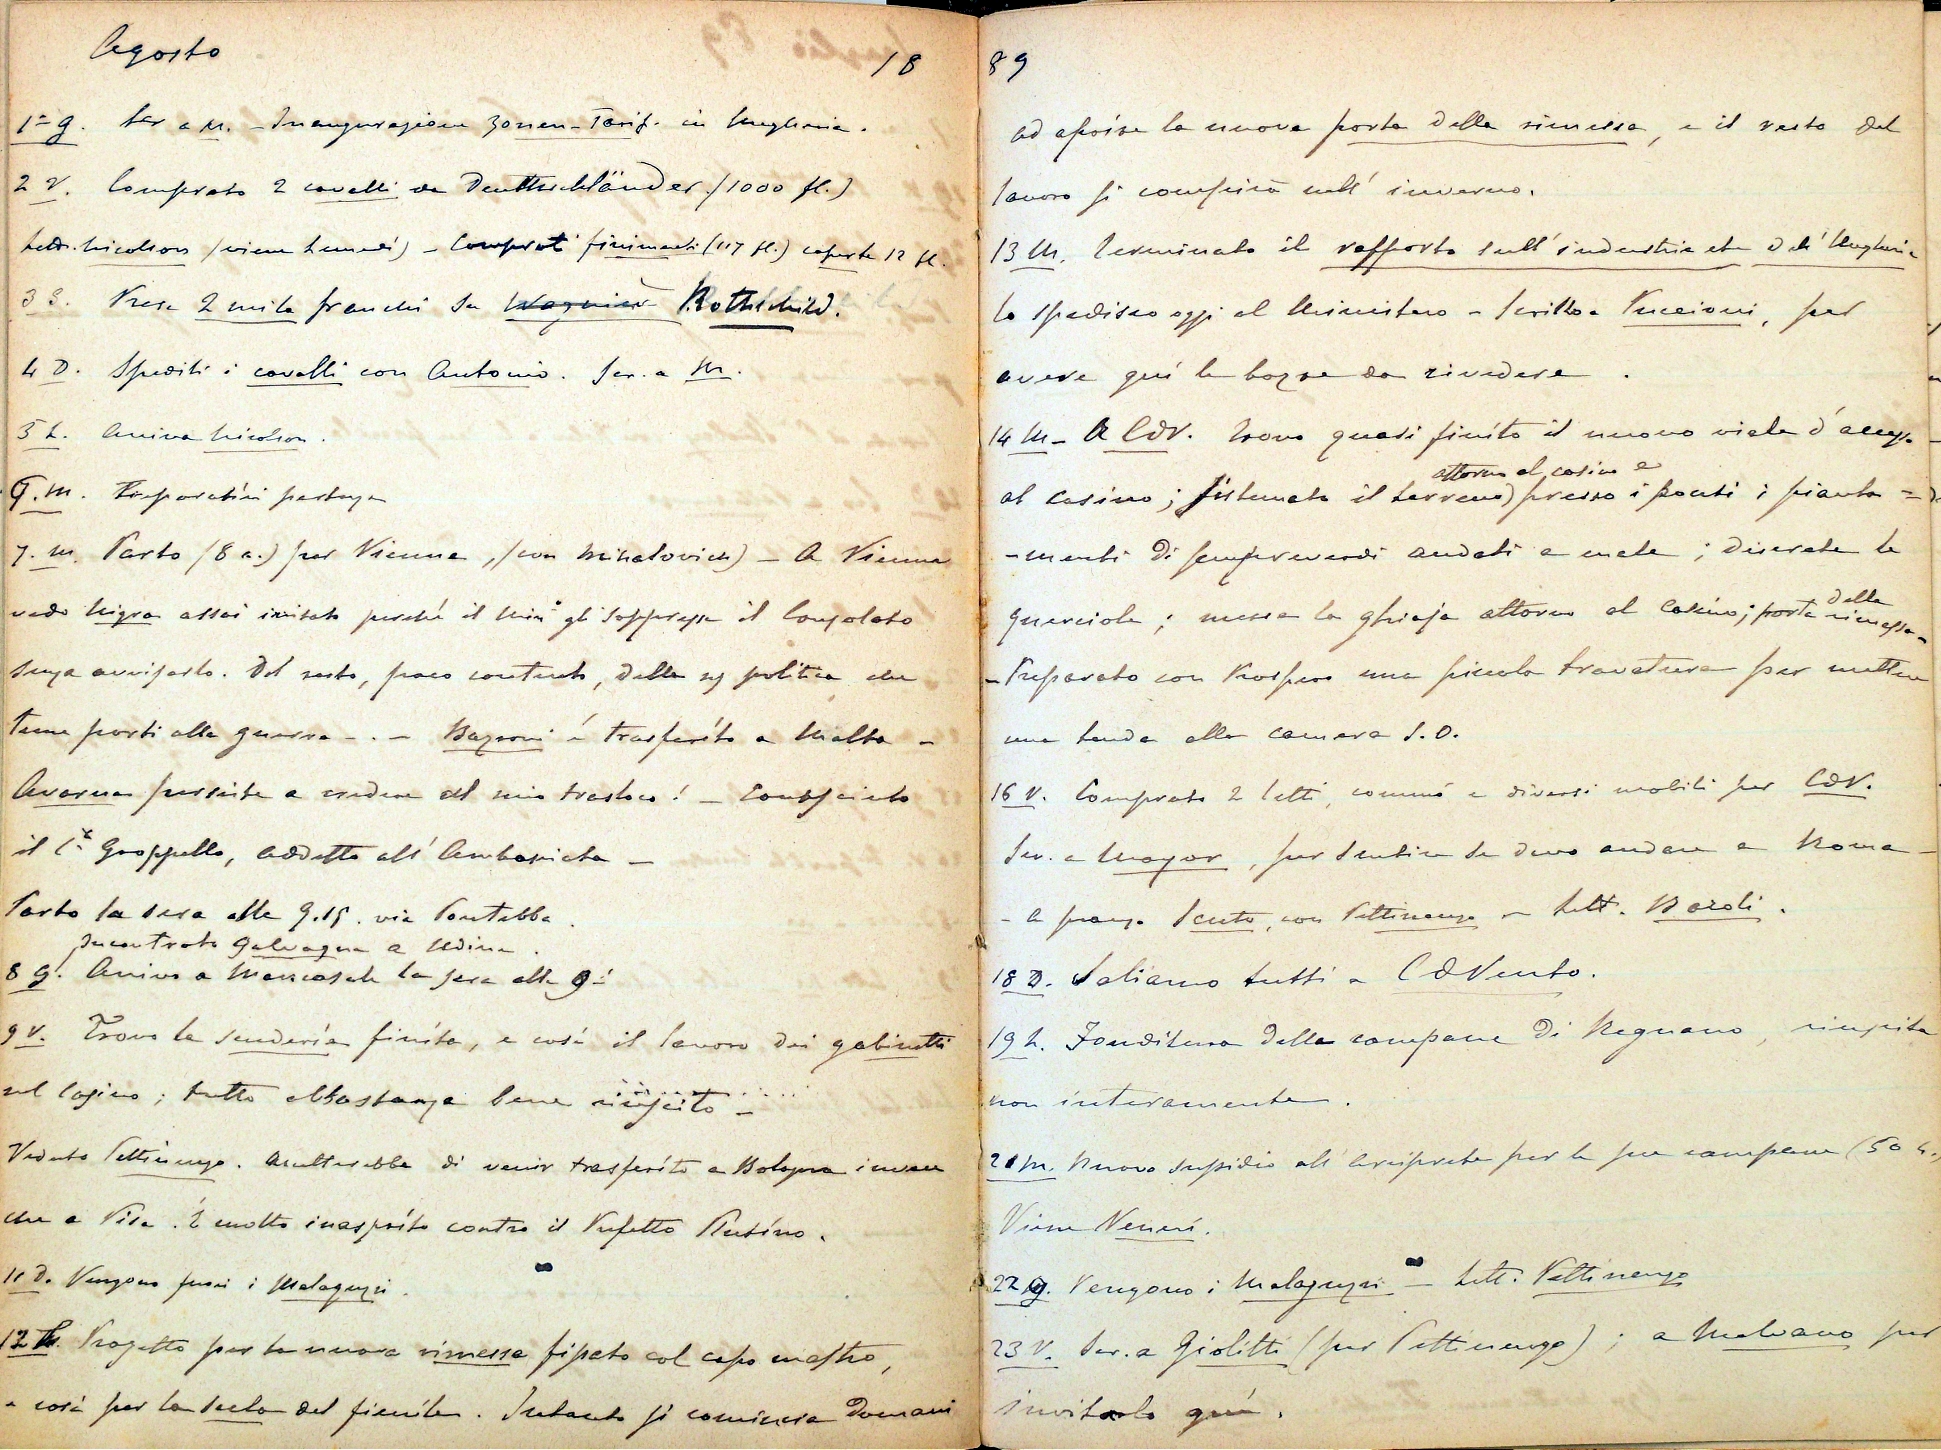 Agosto 18
1° G. Scr a M. - Inaugurazione Zonen-Tarif. in Ungheria.
2 V. Comprato 2 cavalli da Deutschländer (1000 fl.)
Lett. Nicolson (viene Lunedí) - Comprati finimenti (117 fl.) coperte 12 fl.
3 S. Presi 2 mila franchi da Wagnier Rothschild.
4 D. Spediti i cavalli con Antonio. Scr. a M.
5 L. Arriva Nicolson.
6. M. Preparativi partenza
7. M. Parto (8 a.) per Vienna, (con Mihalovich) - A Vienna
vedo Nigra assai irritato perché il Min° gli soppresse il Consolato
senza avvisarlo. Del resto, poco contento, della ns politica che
teme porti alla guerra - . - Bazzoni é trasferito a Malta -
Avarna persiste a credere al mio trasloco! - Conosciuto
il C.te Groppello, addetto all' Ambasciata -
Parto la sera alle 9.15. via Pontebba.
Incontrato Galvagna a Udine.
8 G. Arrivo a Mancasale la sera alle 9½
9 V. Trovo la scuderia finita, e cosí il lavoro dei gabinetti
nel Casino; tutto abbastanza bene riuscito -
Veduto Pettinengo. Accetterebbe di venir trasferito a Bologna invece
che a Pisa. È molto inasprito contro il Prefetto Plutino.
11 D. Vengono fuori i Malaguzzi.
12 L. Progetto per la nuova rimessa fissato col capo mastro,
e cosí per la scala del fienile. Intanto si comincia domani
89
ad aprire la nuova porta della rimessa, e il resto del
lavoro si compirà nell' inverno.
13 M. Terminato il rapporto sull' industria etc dell' Ungheria
Lo spedisco oggi al Ministero - Scritto a Puccioni, per
avere quí le bozze da rivedere.
14 M - A CdV. Trovo quasi finito il nuovo viale d'accesso
attorno al casino e
al casino; sistemato il terreno presso i ponti i pianta =
- menti di sempreverdi andati a male; diserate le
querciole; messa la ghiaja attorno al Casino; porta della rimessa -
- Preparato con Prospero una piccola travatura per mettere
una tenda alla camera S.O.
16 V. Comprato 2 letti, commó e diversi mobili per CdV.
Scr. a Mayor, per sentire se devo andare a Roma -
- A pranzo Scuto, con Pettinengo - Lett. Baroli.
18 D. Saliamo tutti a CdVento.
19 L. Fonditura della campane di Regnano, riuscita
non interamente.
20 M. Nuovo sussidio all' arciprete per le sue campane (50 L.)
Viene Veneri.
22 G. Vengono i Malaguzzi - Lett. Pettinengo
23 V. Scr. a Giolitti (per Pettinengo); a Malvano per
invitarlo quí.